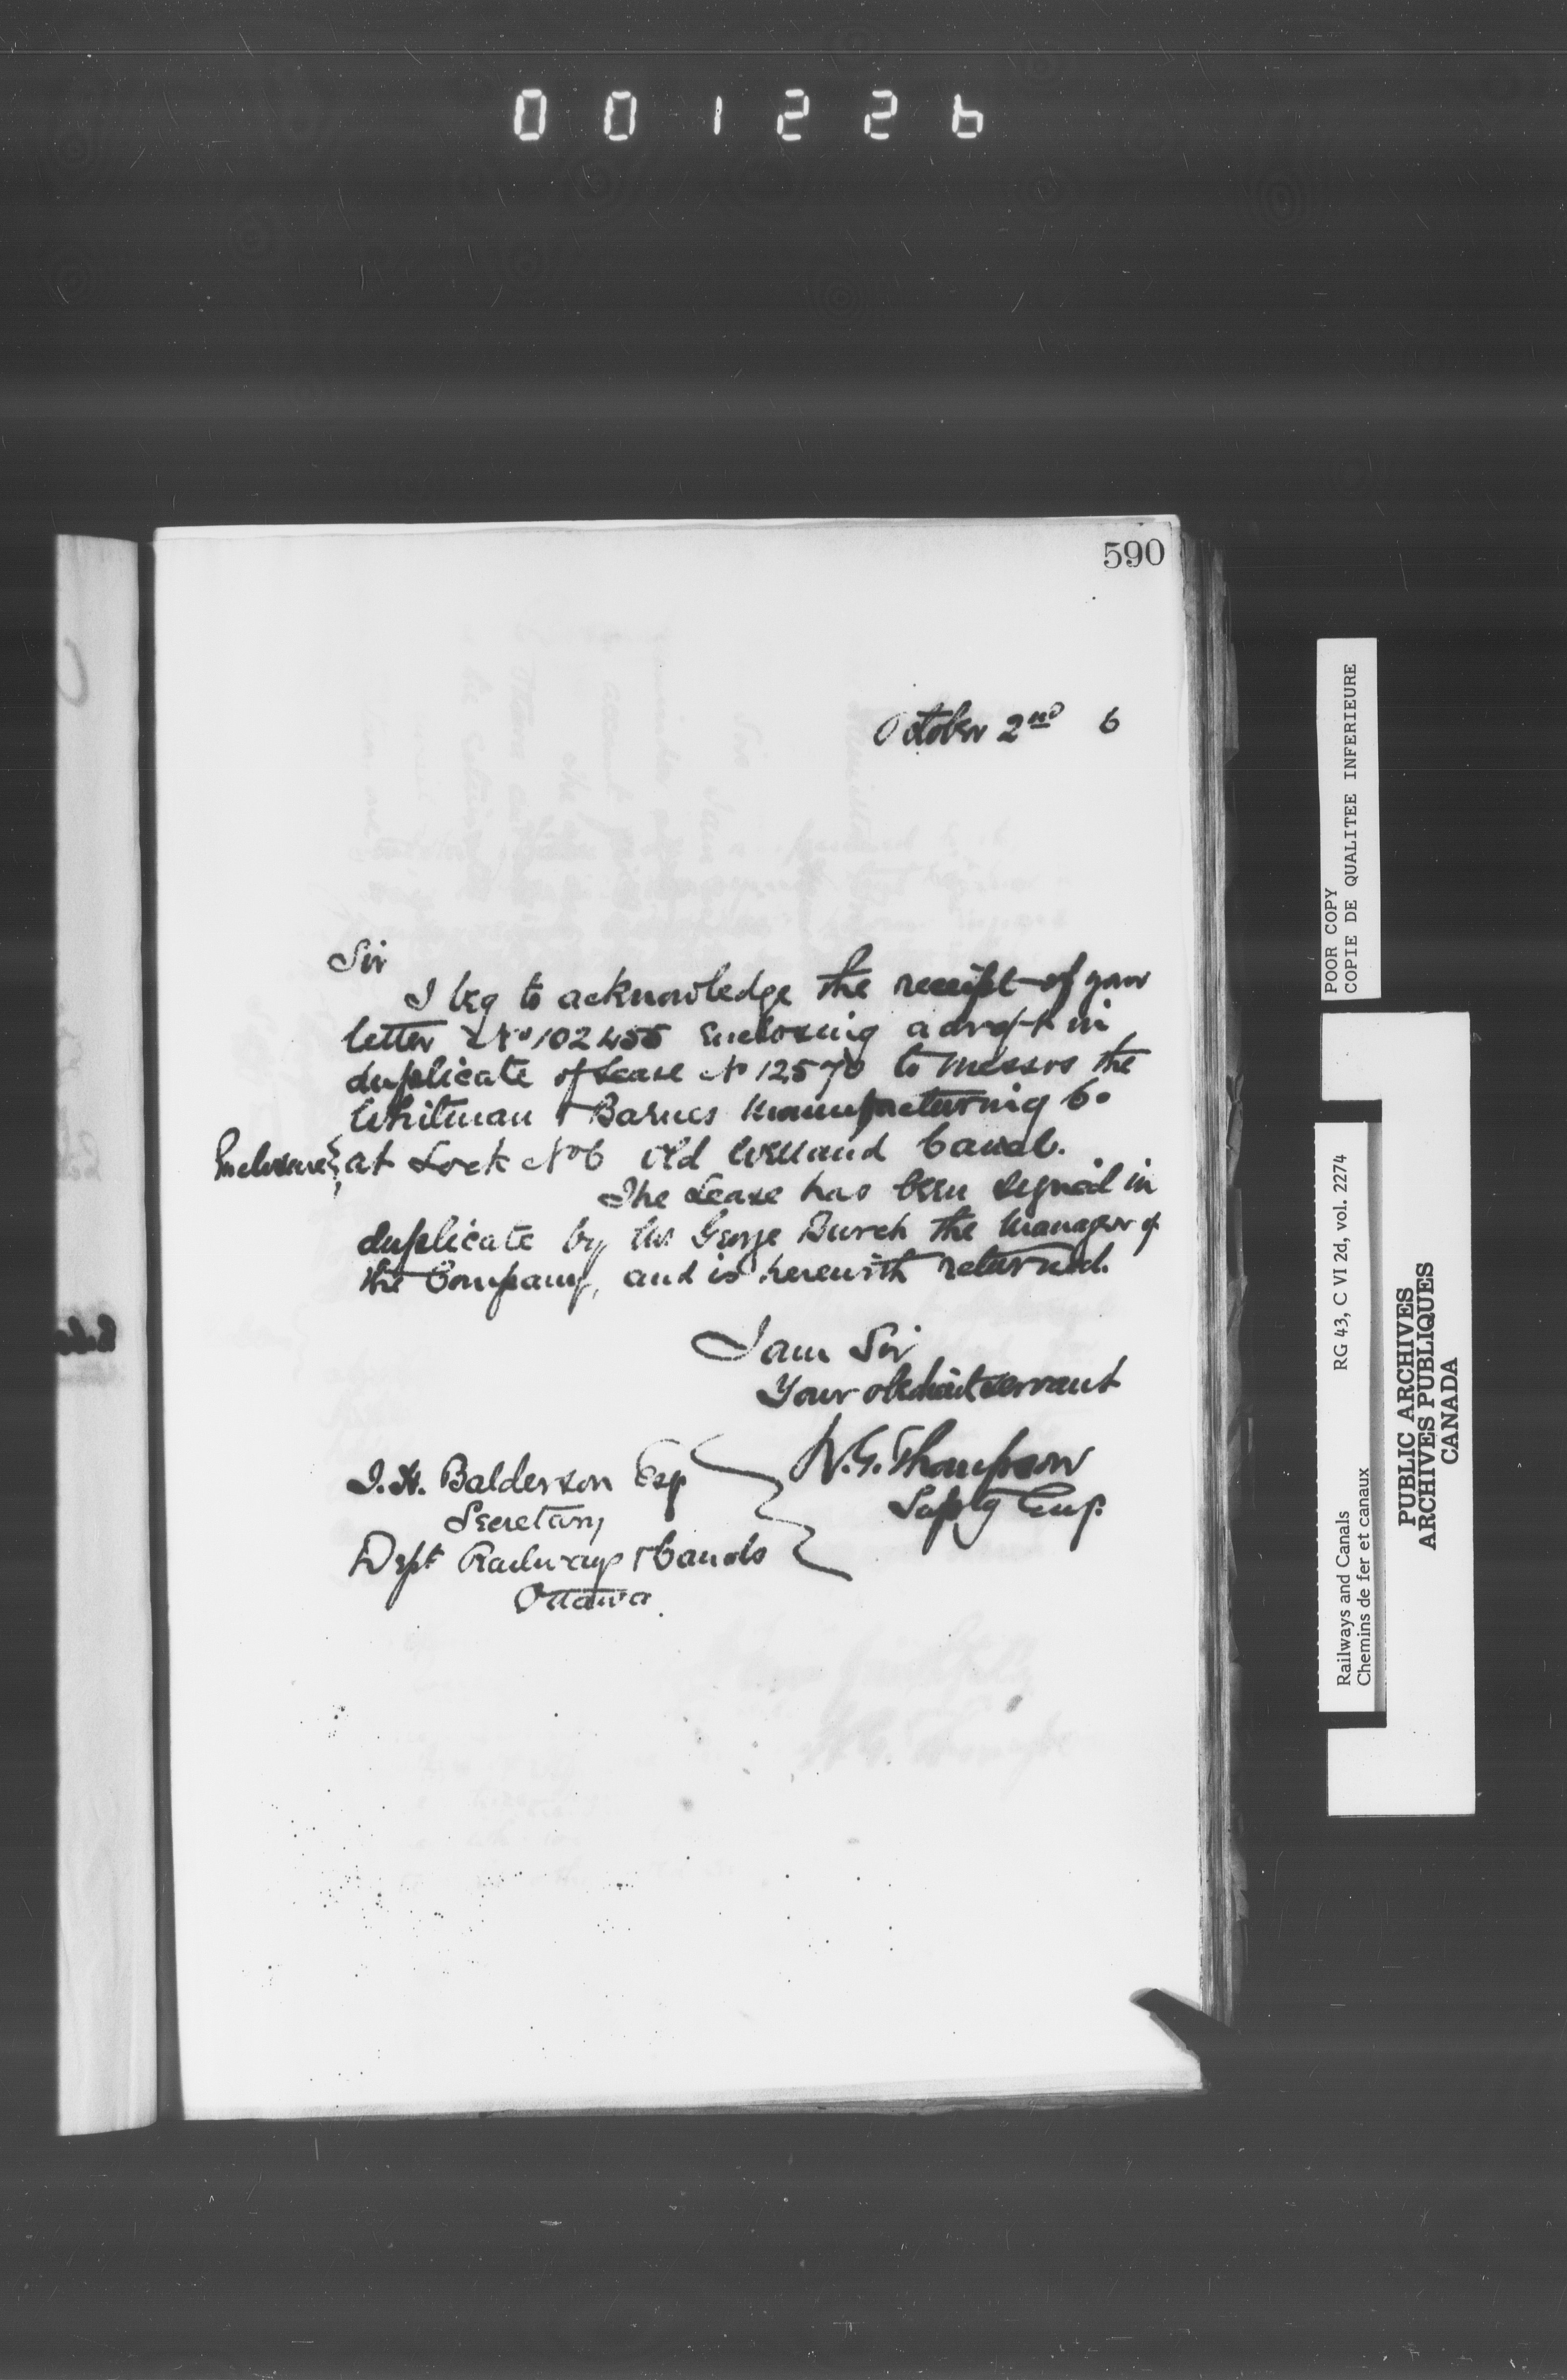 001226
590
October 2nd 6
Sir
I beg to acknowledge the receipt of your
letter No 102455 Enclosing a draft in
duplicate of Lease No 12570 to Messrs the
Whitman & Barnes Manufacturing Co
Enclosure at Lock No 6 Old Welland Canal.
The Lease has been signed in
duplicate by Mr George Burch the Manager of
the Company, and is herewith returned.
I am Sir
Your obedient servant
W.G. Thompson
Suptg Eng.
J. H. Balderson Esq
Secretary
Dept Railways & Canals
Ottawa.
POOR COPY
COPIE DE QUALITEE INFERIEURE
Railways and Canals RG 43, C VI 2d, vol. 2274
Chemins de fer et canaux
PUBLIC ARCHIVES
ARCHIVES PUBLIQUES
CANADA